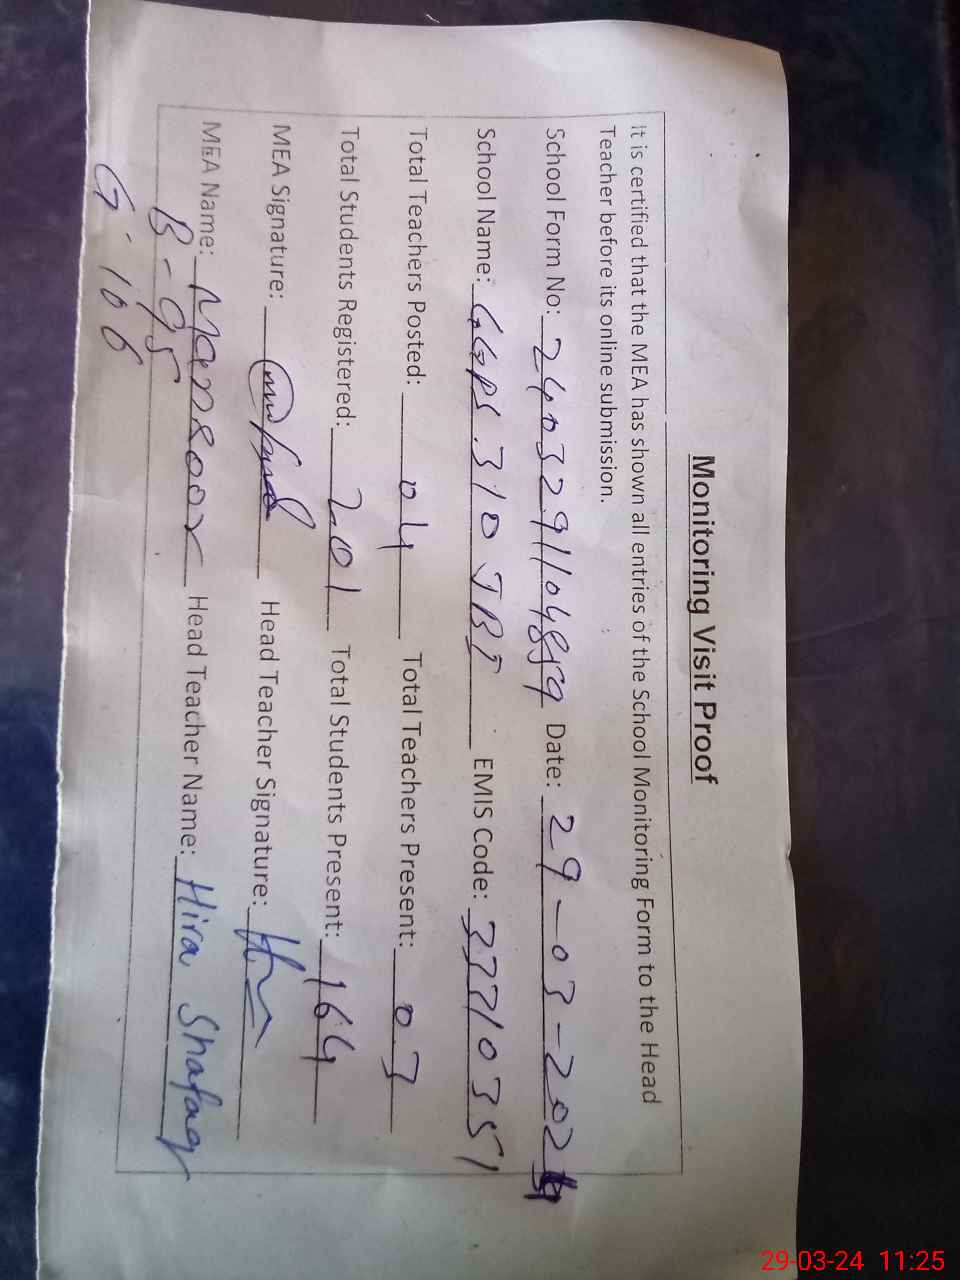 Monitoring Visit Proof
It is certified that the MEA has shown all entries of the School Monitoring Form to the Head
Teacher before its online submission.
School Form No: 2403291104859 Date: 29-03-2024
School Name: GGPS 310 JB I EMIS Code: 33710351
Total Teachers Posted: 04 Total Teachers Present: 03
Total Students Registered: 201 Total Students Present: 164
MEA Signature: Head Teacher Signature:
MEA Name: Manzoor Head Teacher Name: Hira Shafaq
B-95
G-106
29-03-24 11:25